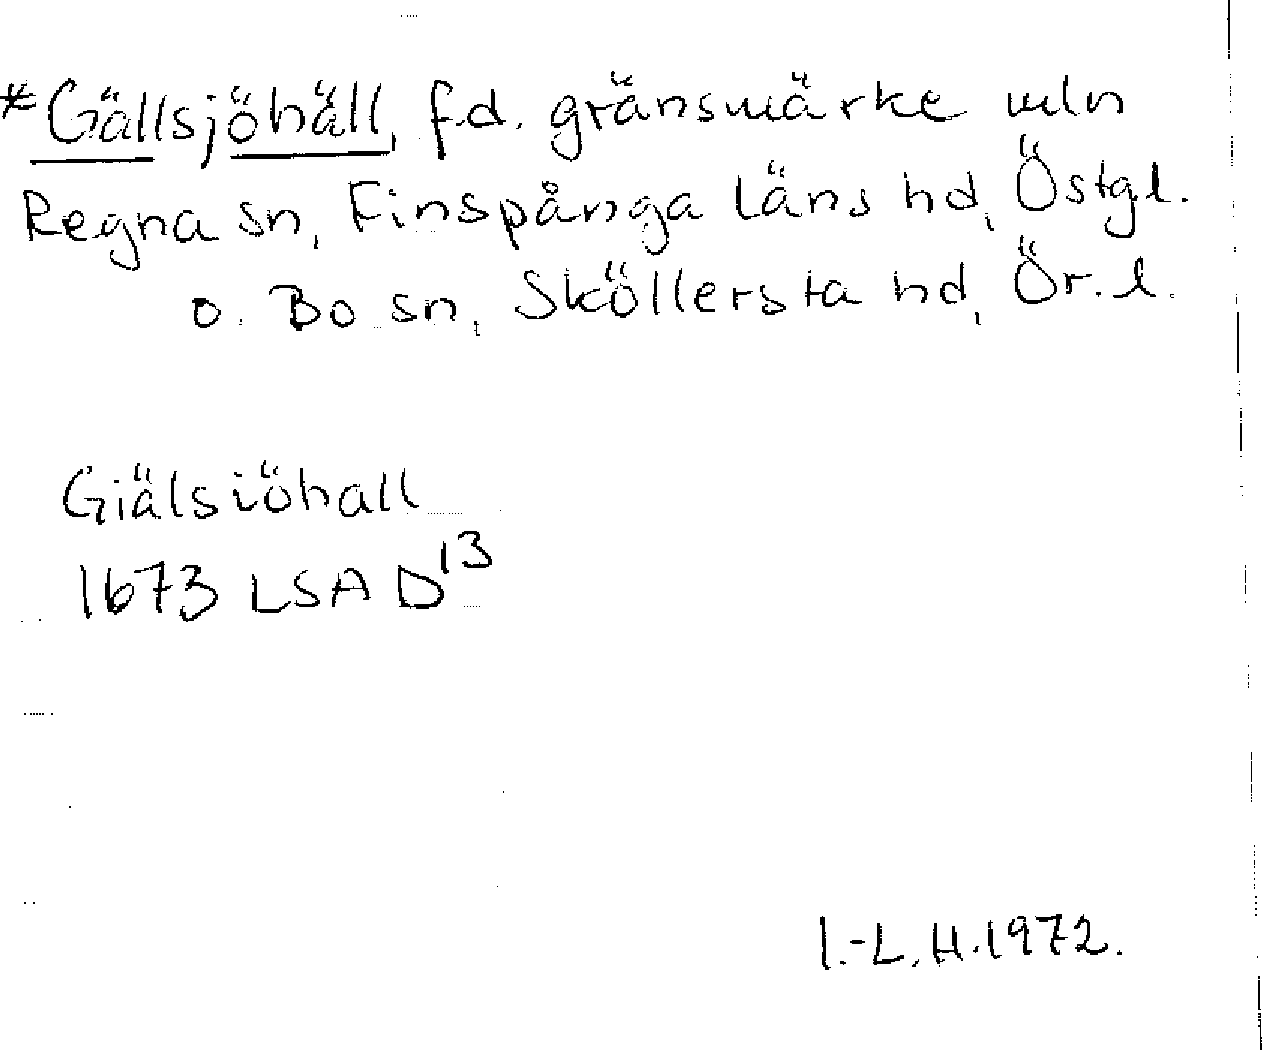 *Gällsjöhäll, f.d. gränsmärke mln
Regna sn, Finspånga läns hd, Östgl.
o. Bo sn, Sköllersta hd, Ör. l.
Giälsiöhall
1673 LSA D13
I.-L. H. 1972.